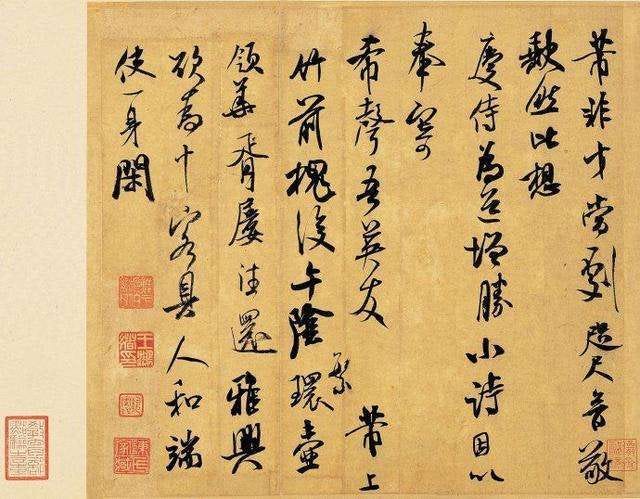 芾非才當劇咫尺音敬
闕然比想
慶侍為道增勝小詩因以
奉寄
希聲吾英友 芾上
竹前槐後午陰環壺
繁
領華胥屢往還雅興
欲為十客具人和端
使一身閑